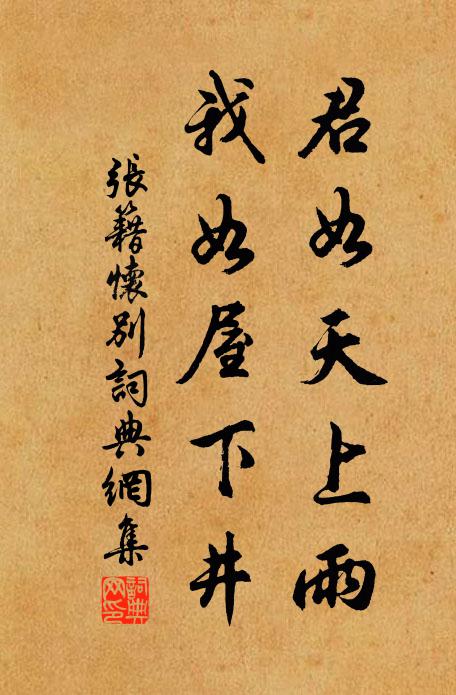 君如天上雨
我如屋下井
張籍懷別詞典網集
詞典网印